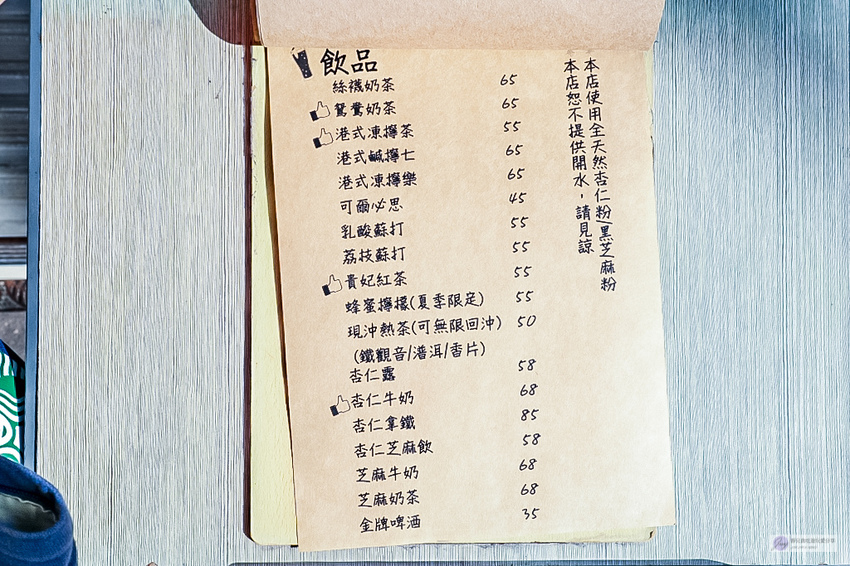 飲品
絲襪奶茶 65
鴛鴦奶茶 65
港式凍檸茶 55
港式鹹檸七 65
港式凍檸樂 65
可爾必思 45
乳酸蘇打 55
荔枝蘇打 55
貴妃紅茶 55
蜂蜜檸檬(夏季限定) 55
現沖熱茶(可無限回沖) 50
(鐵觀音/潽洱/香片)
杏仁露 58
杏仁牛奶 68
杏仁拿鐵 85
杏仁芝麻飲 58
芝麻牛奶 68
芝麻奶茶 68
金牌啤酒 35
本店使用全天然杏仁粉/黑芝麻粉
本店恕不提供開水，請見諒